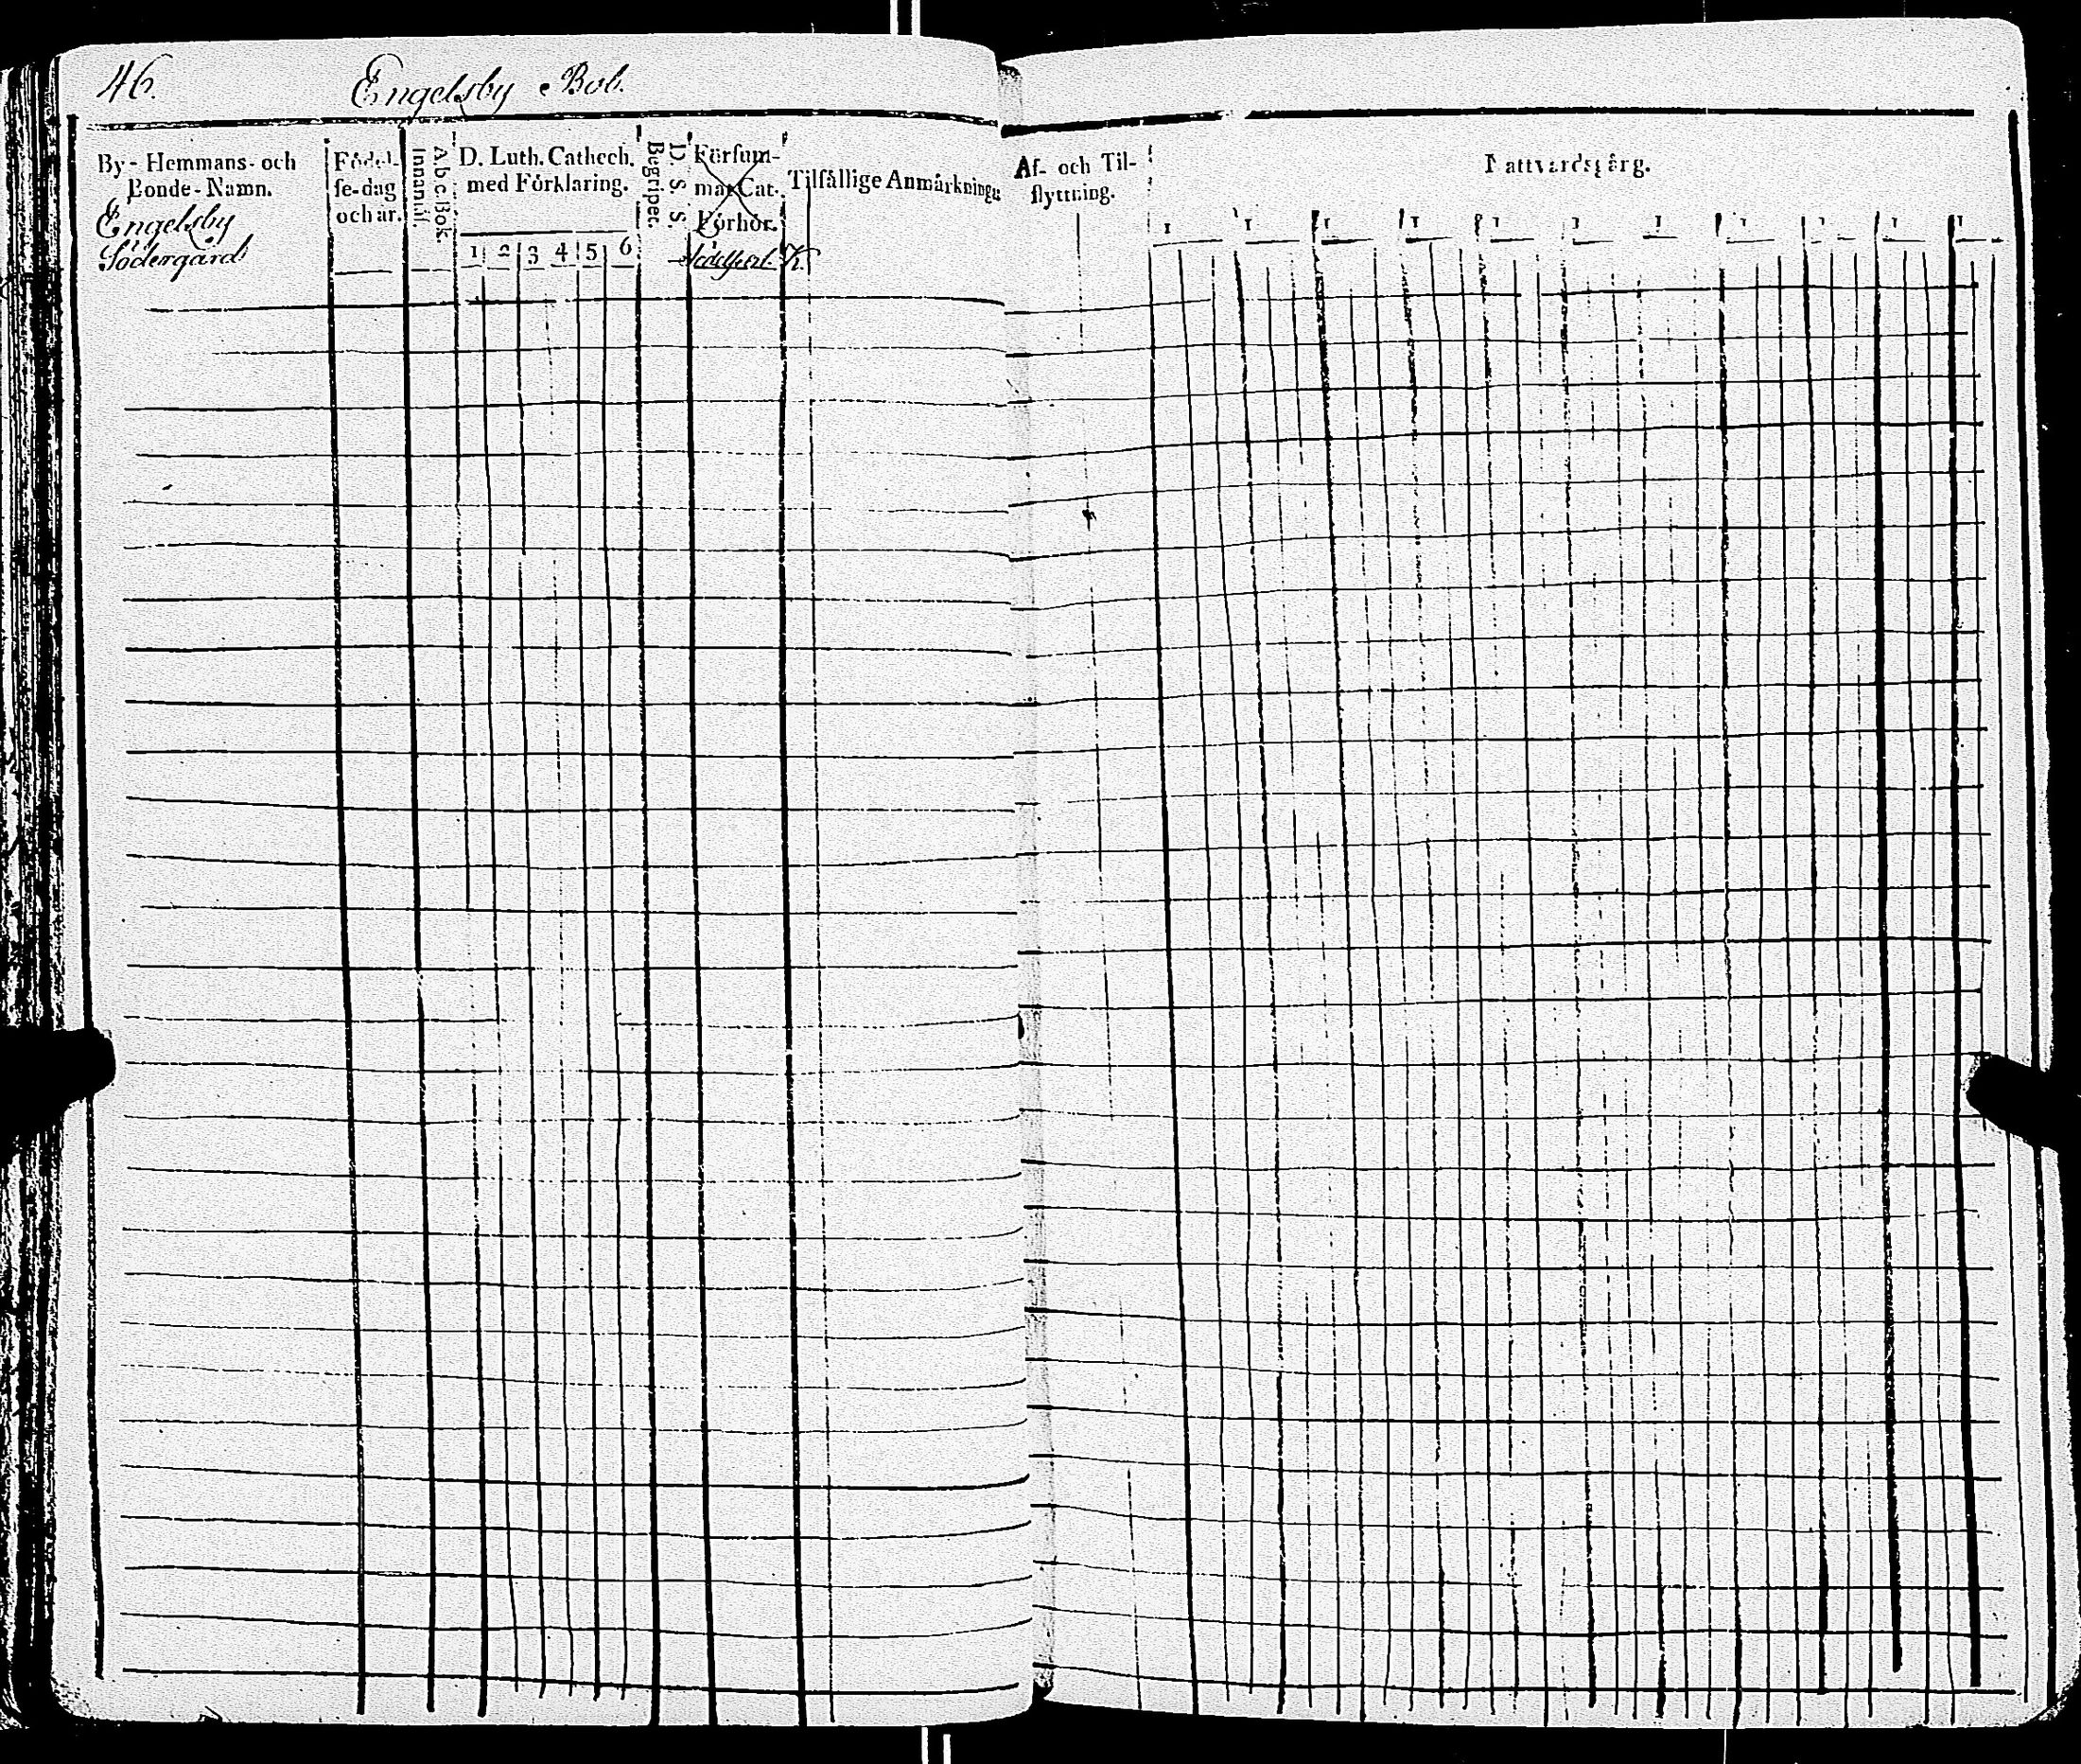 46. Engelsby Bol.
By- Hemmans- och
Bonde-Namn.
Engelsby
Södergård
Födel-
se-dag
och år.
Innantil.
A b c Bok.
D. Luth. Cathech.
med Förklaring.
1 2 3 4 5 6
Begriper.
D. S. S.
Försum-
mat Cat.
Förhör.
Tilfällige Anmärkningar
Af- och Til-
flyttning.
Nattvardsgång.
1 1 1 1 1 1 1 1 1 1 1